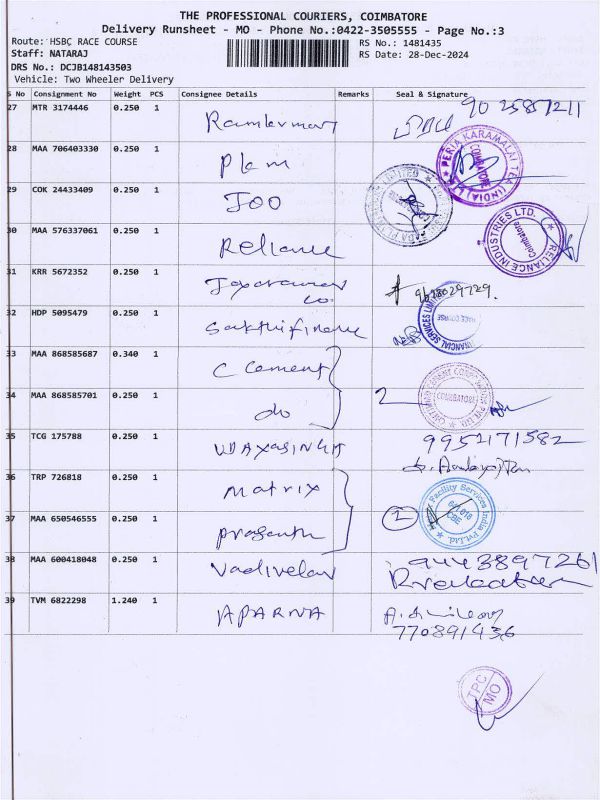 THE PROFESSIONAL COURIERS, COIMBATORE
Delivery Runsheet - MO - Phone No.:0422-3505555 - Page No.:3
Route: HSBC RACE COURSE
RS No.: 1481435
Staff: NATARAJ
RS Date: 28-Dec-2024
DRS No.: DCJB148143503
Vehicle: Two Wheeler Delivery
S No Consignment No Weight PCS Consignee Details Remarks Seal & Signature
27 MTR 3174446 0.250 1 90 2587211
28 MAA 706403330 0.250 1 PERIA KARAMALAI TEA (INDIA) COIMBATORE
29 COK 24433409 0.250 1 LIMITED
30 MAA 576337061 0.250 1 Reliance RELIANCE INDUSTRIES LTD. Coimbatore
31 KRR 5672352 0.250 1 co 9628029729.
32 HDP 5095479 0.250 1 Sakthifinance FINANCIAL SERVICES LIMITED RACE COURSE
33 MAA 868585687 0.340 1 C Cement
34 MAA 868585701 0.250 1 do 2 COIMBATORE
35 TCG 175788 0.250 1 UDAYASINGH 9952171582
36 TRP 726818 0.250 1 Matrix Facility Services India Pvt.Ltd. 641 018 CBE
37 MAA 650546555 0.250 1 Prasanth 2
38 MAA 600418048 0.250 1 Vadivelan 9443897261
39 TVM 6822298 1.240 1 APARNA
770891436
TPC MO